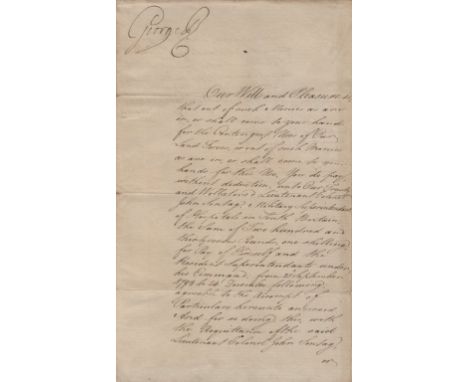 George R
Our Will and Pleasure is,
that out of such Monies as are
in, or shall come to your hands
for the Contingent Uses of Our
Land Forces, or out of such Monies
as are in, or shall come to your
hands for this Use, You do pay
without deduction, unto Our Trusty
and Wellbeloved Lieutenant Colonel
John Military Superintendant
of Hospitals in South Britain,
the Sum of Two hundred and
Pounds, one shilling,
for Pay of himself and the
Resident Superintendants under
his Command, from September
to 24 December following
agreeable to the Account of
Particulars hereunto annexed.
And for so doing this, with
the Acquittance of the said
Lieutenant Colonel John
or